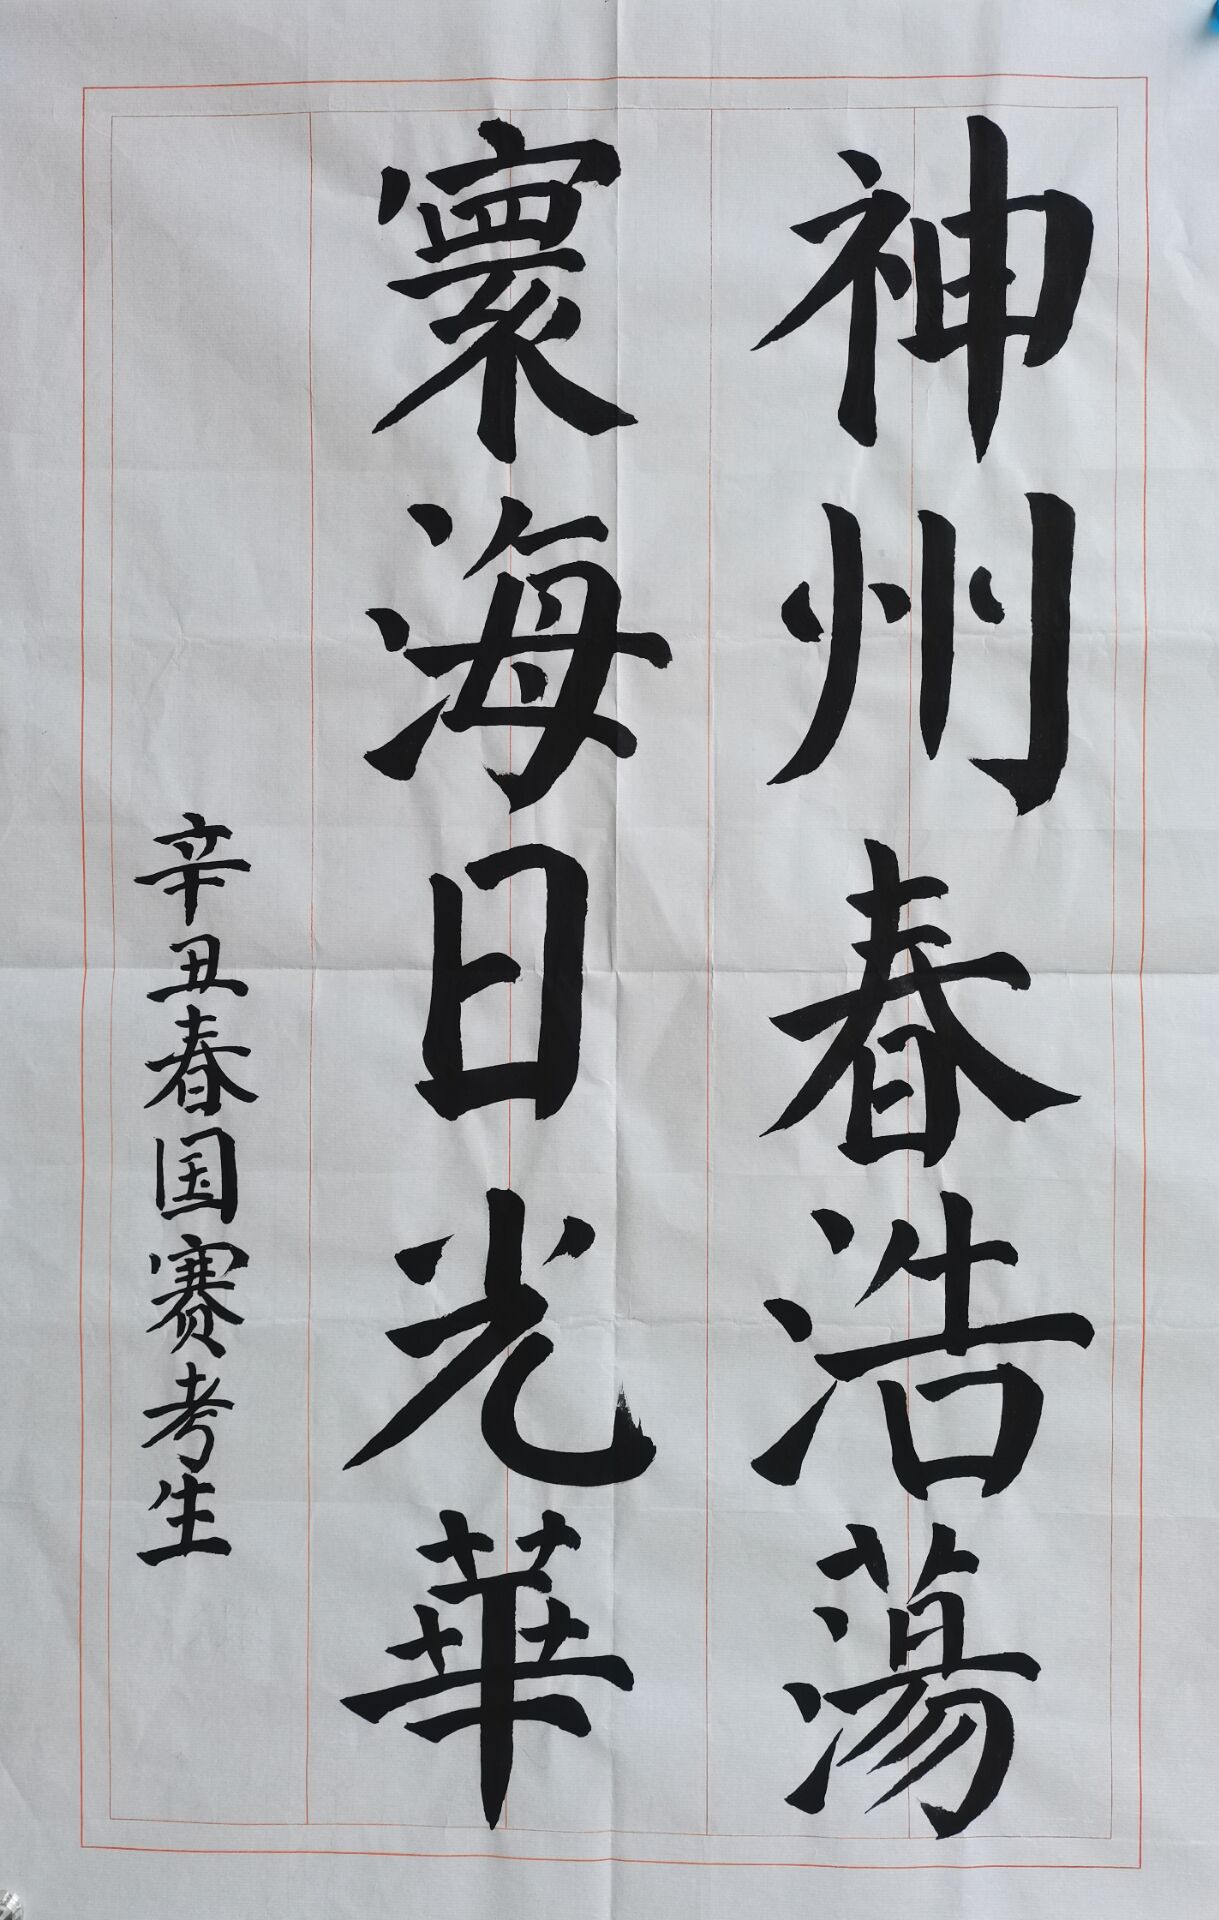 神州春浩蕩
寰海日光華
辛丑春国赛考生